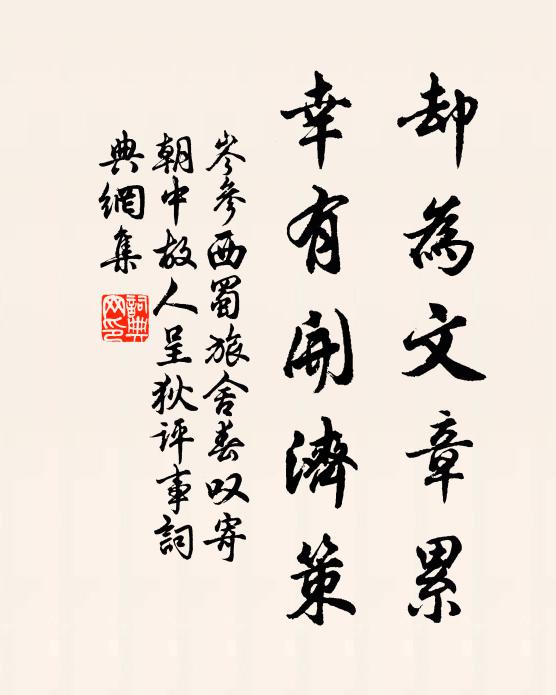 却為文章累
幸有開濟策
岑參西蜀旅舍春叹寄
朝中故人呈狄評事詞
典網集
詞典网印